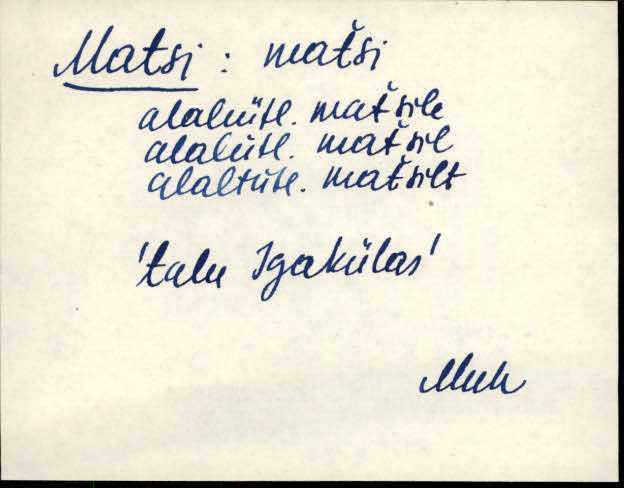 Matsi : matši
alalütl. matšile
alalütl. matšil
alaltütl. matšilt
'talu Igakülas'
Muh